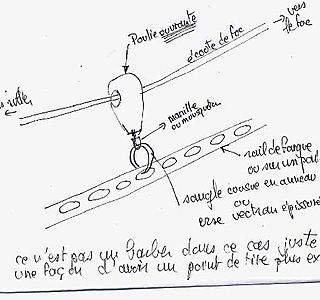 Poulie ouvrante
vers
le foc
écoute de foc
manille
ou mousqueton
rail de
ou sur un
sangle cousue en anneau
ou
erse vectran épissuré
ce n'est pas un barber dans ce cas juste
une façon d'avoir un point de tire plus ex